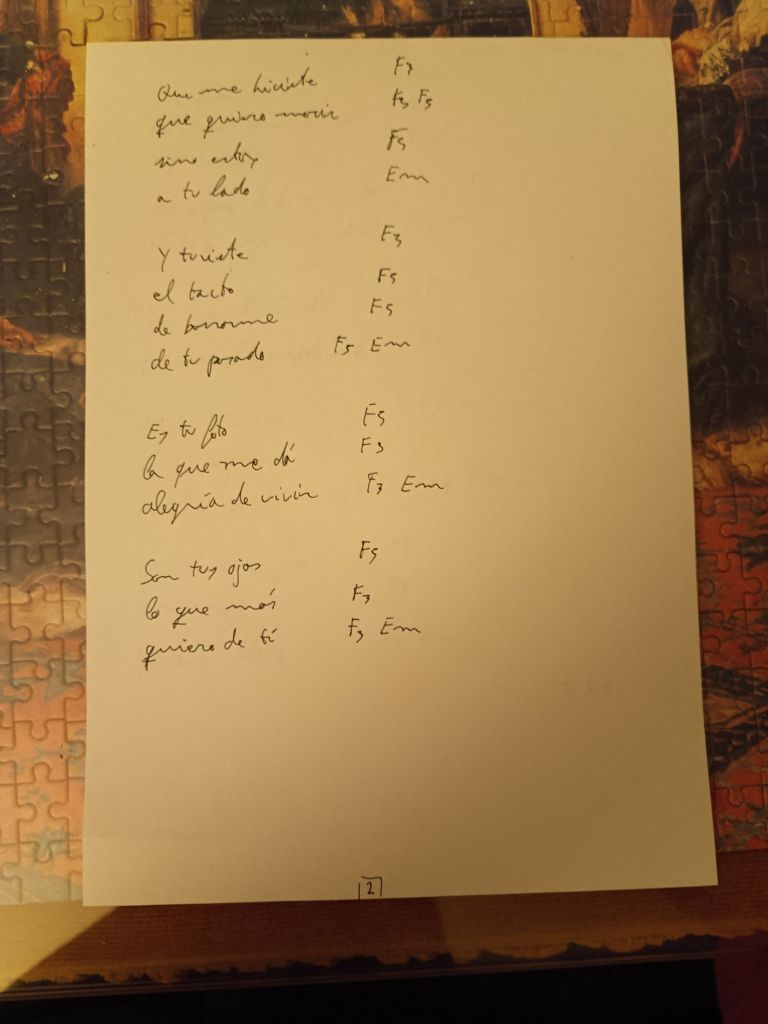 Que me hiciste F3
que quiero morir F3 F5
sino estoy F5
a tu lado Em
Y tuviste F3
el tacto F5
de borrarme F5
de tu pasado F5 Em
Es tu foto F5
la que me dá F3
alegría de vivir F3 Em
Son tus ojos F5
lo que más F3
quiero de tí F3 Em
2